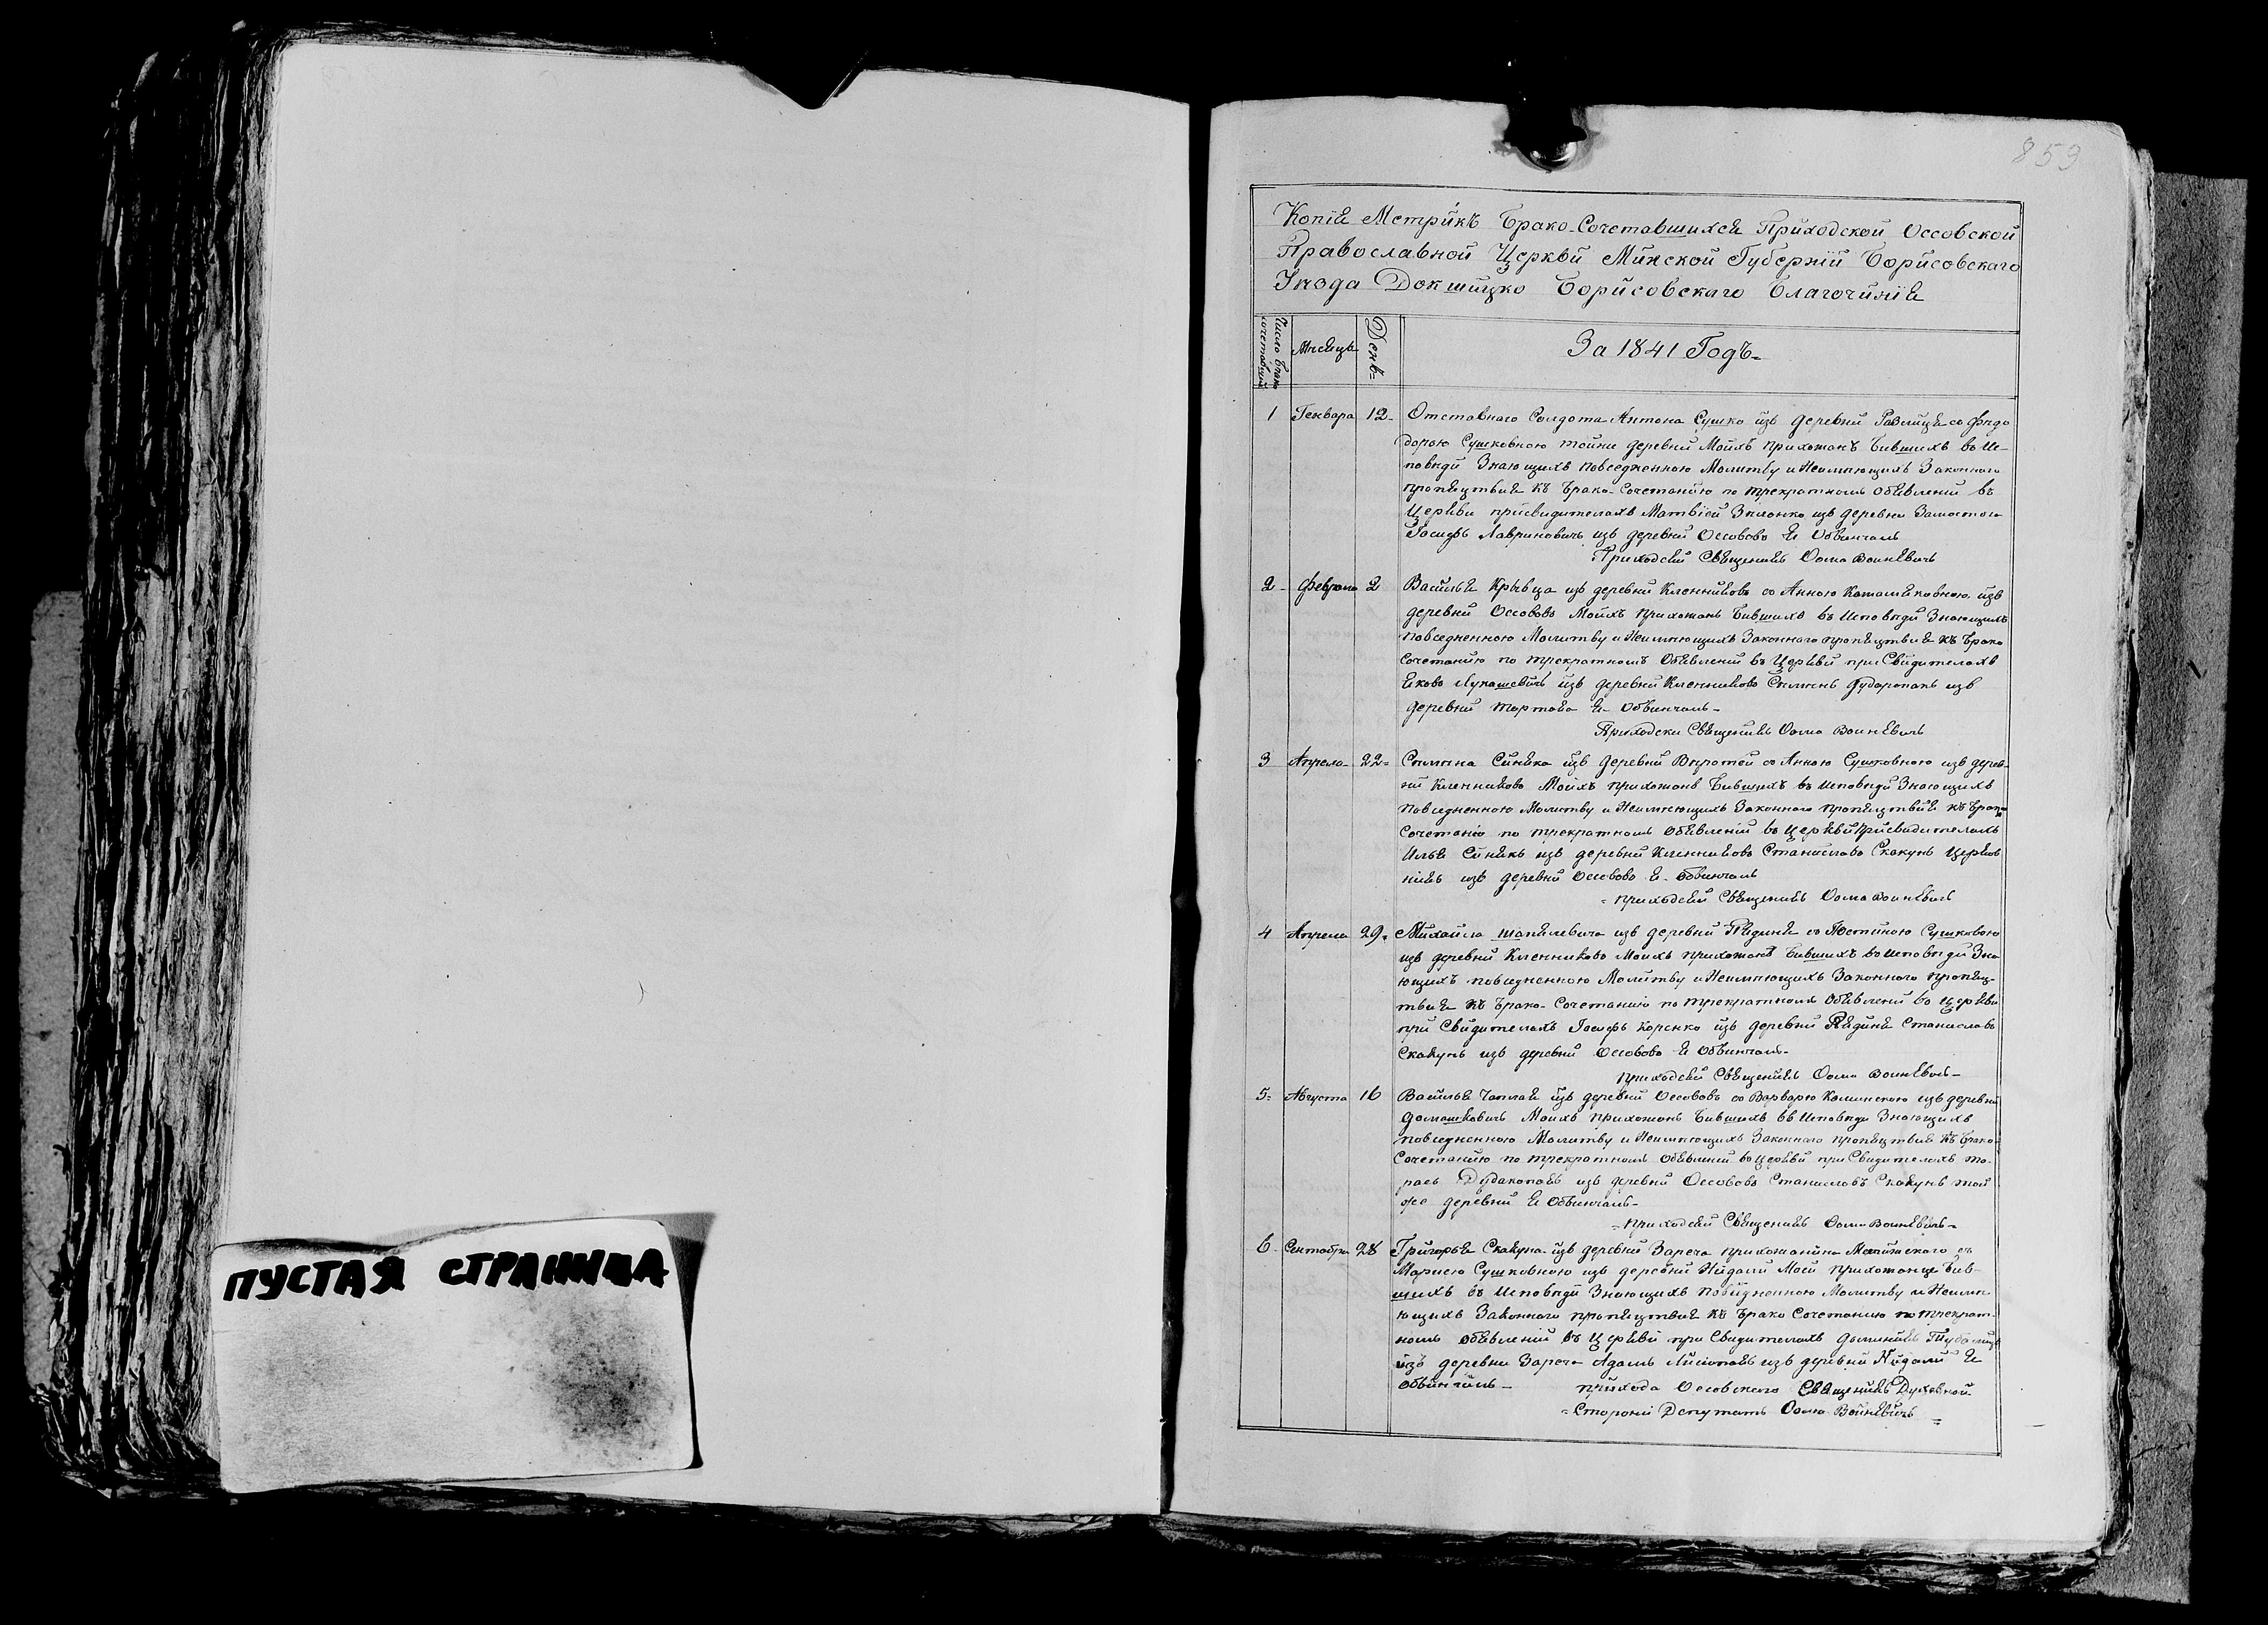 853
Копія Метрикъ Брако-Сочетавшихся Приходской Оссовской
Православной Церкви Минской Губерніи Борисовскаго
Уѣзда Докшицко Борисовскаго Благочинія
Число Брако
сочетавших
Мѣсяцъ
День
За 1841 Годъ
1 Генвара 12 Отставнаго Салдата Антона Сушко изъ деревни со Ѳѣдо
дорою Сушковною тойже деревни Моихъ прихожанъ бившихъ въ Ис-
повѣди Знающихъ повседневною Молитву и Неимѣющихъ Законнаго
препяцтвія къ Брако-Сочетанію по трекратномъ Обявленіи въ
Церкви присвидителахъ Матвѣей изъ деревни
Іосифъ Лавриновичъ изъ деревни Оссовово Я Обвинчалъ
Приходскій Священникъ Ѳома Воинквичъ
2 Февраля 2 Василья Крывца изъ деревни Кленниковъ со Анною изъ
деревни Оссововъ Моихъ прихожанъ Бившихъ въ Исповѣди Знающихъ
повседневною Молитву и Неимѣющихъ Законнаго препяцтвія къ Брако
Сочетанію по трекратномъ Обявленіи въ Церкви при Свидителахъ
Яковъ Лукашевичъ изъ деревни Кленниково изъ
деревни Я Обвинчалъ
Приходски Священникъ Ѳома Воинквичъ
3 Апрела 22 Синяка изъ деревни со Анною Сушковною изъ дерев-
ни Кленниково Моихъ прихожанъ Бившихъ въ Исповѣди Знающихъ
повседневною Молитву и Неимѣющихъ Законнаго препяцтвія къ Брако
Сочетанію по трекратномъ Обявленіи въ Церкви присвидителахъ
Илья Синякъ изъ деревни Кленниковъ Станиславъ Скакунъ Церков
никъ изъ деревни Оссовово Я Обвинчалъ
приходскій Священникъ Ѳома Воинквичъ
4 Апреля 29 Михайла изъ деревни со Юстиною Сушковою
изъ деревни Кленниково Моихъ прихожанъ Бившихъ во Исповѣди Зна
ющихъ повседневною Молитву и Неимѣющихъ Законнаго препяц-
твія къ Брако-Сочетанію по трекратномъ Обявленіи во Церкви
при Свидителахъ Іосифъ Коренко изъ деревни Станиславъ
Скакунъ изъ деревни Оссовово Я Обвинчалъ
приходскій Священникъ Ѳома Воинквичъ
5 Августа 16 Василья Чаплая изъ деревни Оссововъ со Варварою Каминскою изъ деревни
Домашковичъ Моихъ прихожанъ Бившихъ въ Исповѣди Знающихъ
повседневною Молитву и Неимѣющихъ Законнаго препяцтвія къ Брако-
Сочетанію по трекратномъ Обявленіи во Церкви при Свидителахъ Та-
расъ изъ деревни Оссововъ Станиславъ Скакунъ той
же деревни Я Обвинчалъ
приходскій Священникъ Ѳома Воинквичъ
6 Сентабра 28 Григорья Скакуна изъ деревни Зареча прихожанина съ
Мариею Сушковною изъ деревни Нидали Моей прихожанце Бив-
шихъ въ Исповѣди Знающихъ повседневною Молитву и Неимѣ
ющихъ Законнаго препяцтвія къ Брако Сочетанию по трекрат-
номъ Обявленіи въ Церкви при Свидителахъ Доминикъ
изъ деревни Зареча Адамъ изъ деревни Нидали Я
Обвинчалъ прихода Оссовскаго Священникъ Духовной
Стороніи Депутатъ Ѳома Воинквичъ
ПУСТАЯ СТРАНИЦА